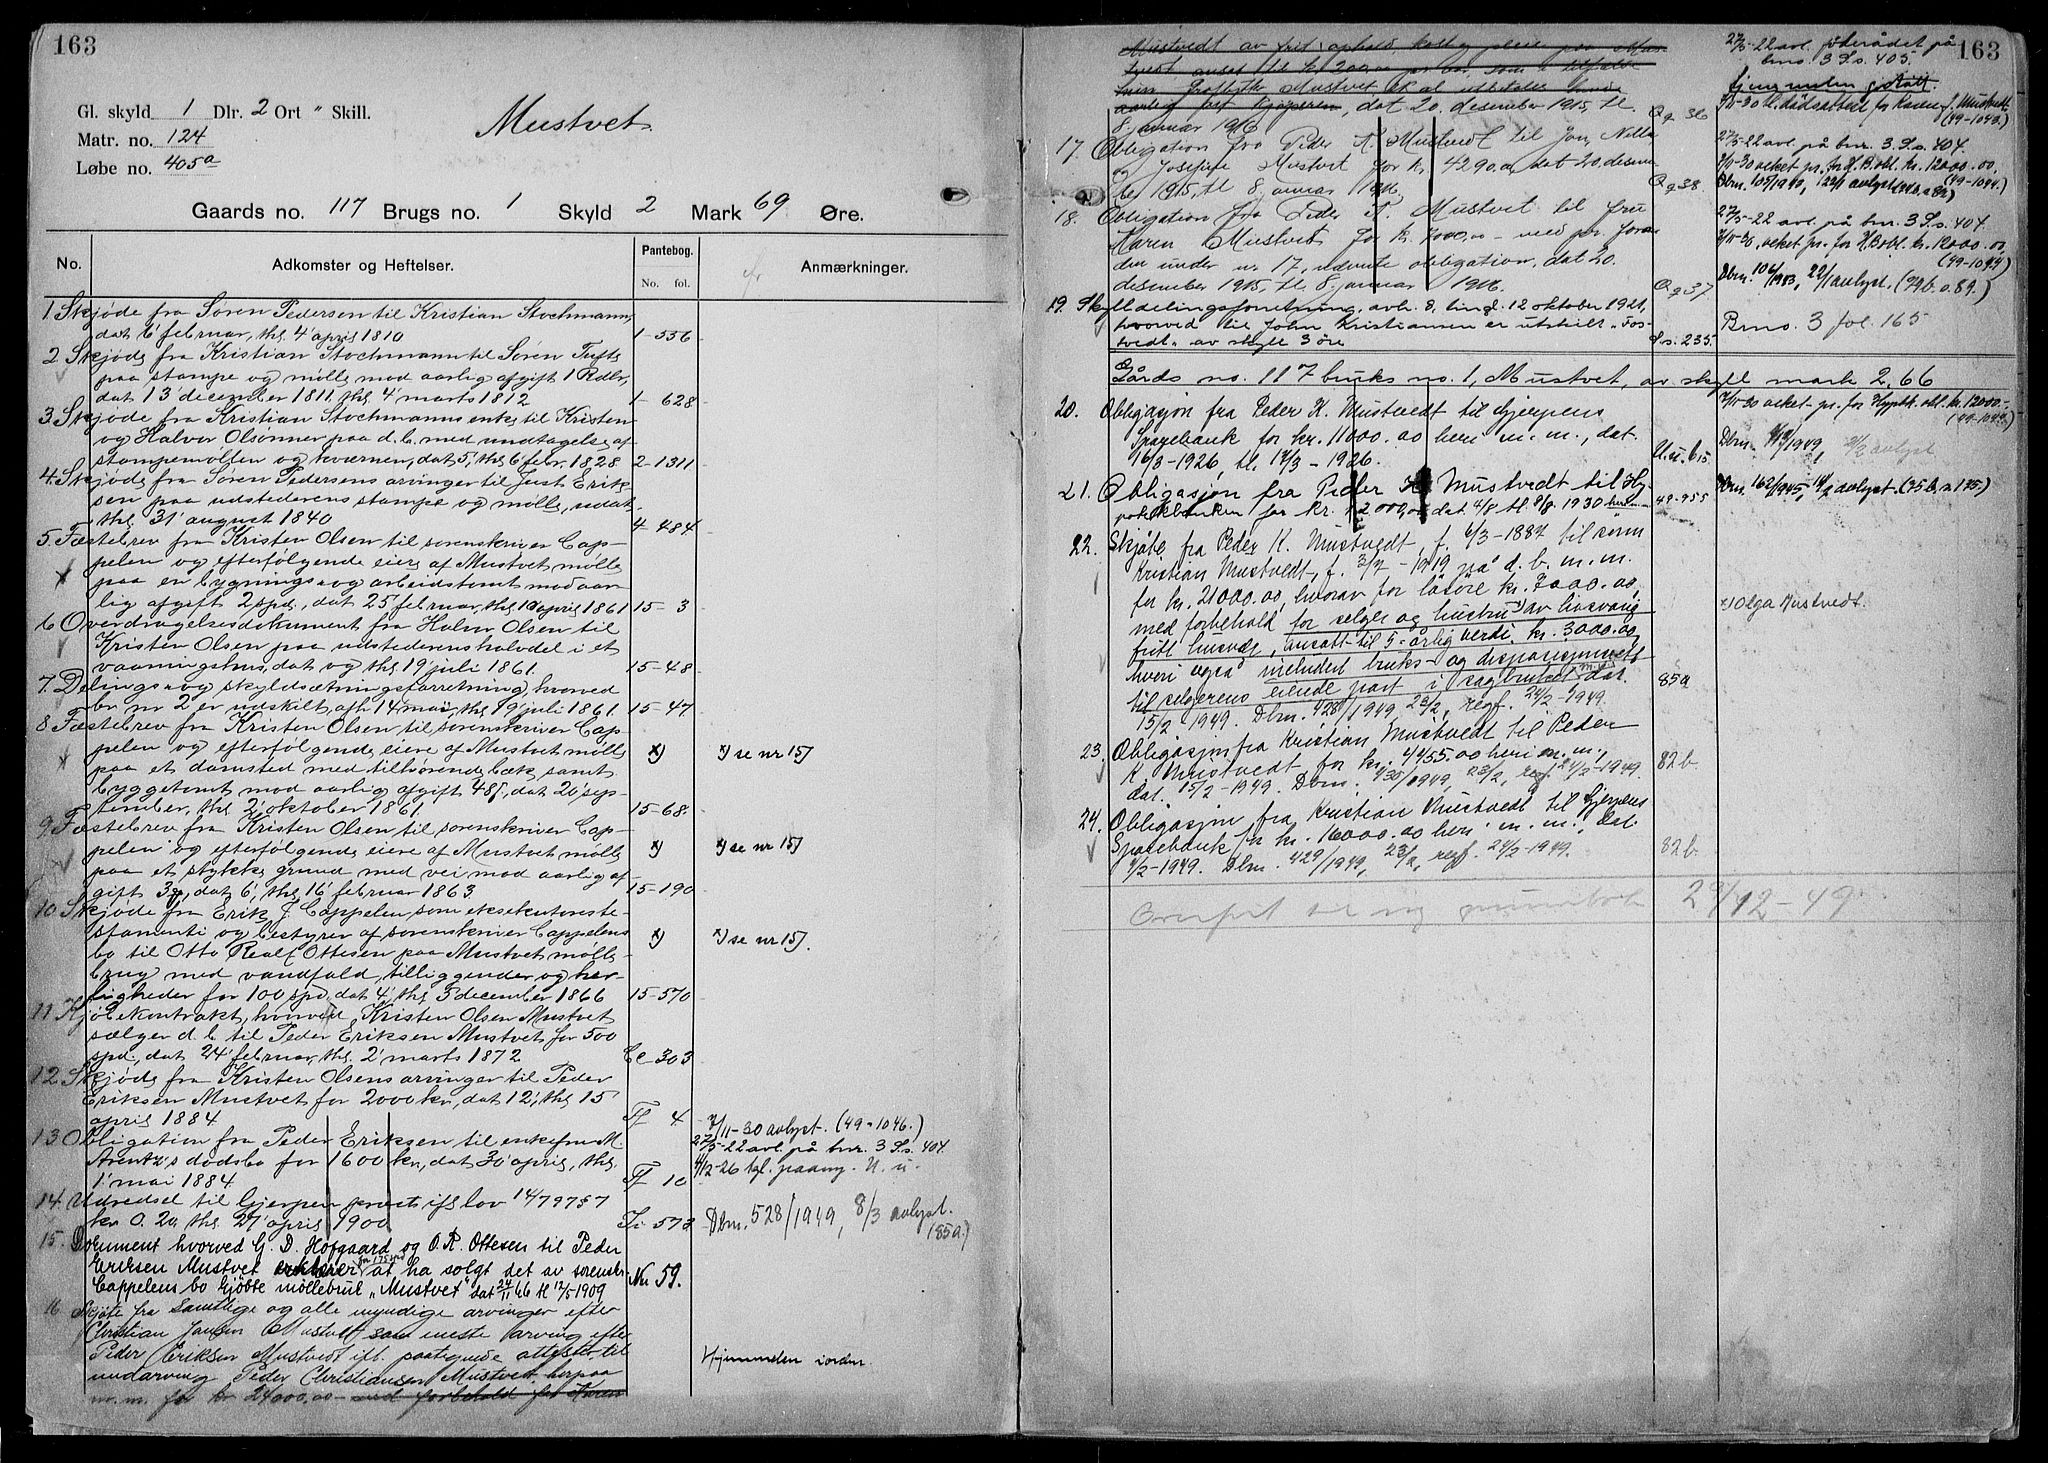 163
Gl. skyld 1 Dlr. 2 Ort " Skill.
Mustvet.
Matr. no. 124
Løbe no. 405a
Gaards no. 117 Brugs no. 1 Skyld 2 Mark 69 Øre.
No. Adkomster og Heftelser. Pantebog. No. fol. Anmærkninger.
1. Skjøde fra Søren Pedersen til Kristian Stochmann,
dat 6' februar, thl. 4' april 1810 1 - 556
2. Skjøde fra Kristian Stochmann til Søren Tufte
paa stampe og mølle mod aarlig afgift 1 Rdlr,
dat 13' december 1811, thl. 4' marts 1812 1 - 628
3. Skjøde fra Kristian Stochmanns enke til Kristen
og Halvor Olsønner paa d. b. med undtagelse af
stampemøllen og kværnen, dat 5', thl. 6' febr. 1828 2 - 1311
4. Skjøde fra Søren Pedersens arvinger til Just Erik-
sen paa udstederens stampe og mølle, udat.
thl. 31' august 1840 4 - 484
5. Fæstebrev fra Kristen Olsen til sorenskriver Cap-
pelen og efterfølgende eiere af Mustvet mølle
paa en bygnings- og arbeidstomt mod aar-
lig afgift 2 spd., dat 25' februar, thl. 10' april 1861 15 - 3
6. Overdragelsesdokument fra Halvor Olsen til
Kristen Olsen paa udstederens halvdel i et
vaaningshus, dat og thl. 19' juli 1861. 15 - 48
7. Delings- og skyldsætningsforretning, hvorved
br nr 2 er udskilt, afh 14' mai, thl. 19' juli 1861. 15 - 47
8. Fæstebrev fra Kristen Olsen til sorenskriver Cap-
pelen og efterfølgende eiere af Mustvet mølle x) x) se nr 15)
paa et damsted med tilhørende bæk samt
byggetomt mod aarlig afgift 48 ſ, dat 20' sep-
tember, thl. 2' oktober 1861. 15 - 68.
9. Fæstebrev fra Kristen Olsen til sorenskriver Cap-
pelen og efterfølgende eiere af Mustvet mølle x) x) se nr 15)
paa et stykke grund med vei mod aarlig af-
gift 3, dat 6', thl. 16' februar 1863 15 - 190
10. Skjøde fra Erik J. Cappelen som eksekutor teste-
stamenti og bestyrer af sorenskriver Cappelens
bo til Otto Realf Ottesen paa Mustvet mølle- x) x) se nr 15).
brug med vandfald, tilliggender og her-
ligheder for 100 spd. dat 4', thl. 5' december 1866 15 - 570
11. Kjøbekontrakt, hvorved Kristen Olsen Mustvet
sælger d. b. til Peder Eriksen Mustvet for 500
spd., dat 24' februar, thl. 2' marts 1872 Cc 303
12. Skjøde fra Kristen Olsens arvinger til Peder
Eriksen Mustvet for 2000 kr, dat 12', thl. 15
april 1884 Ff 4 7/11-30 avlyst. (49-1046.)
13. Obligation fra Peder Eriksen til enkefru M. 27/5-22 avl. på bnr. 3 S.s. 404.
Arentz's dødsbo for 1600 kr, dat 30' april, thl. 4/12-26 tgl. paany. U. u.
1' mai 1884 Ff 10
14. Udredsel til Gjerpen præst ifl lov 14/7 97 § 7
kr 0.20, thl. 27' april 1900 Fi 573 Dbnr. 528/1949, 8/3 avlyst. (85a.)
15. Dokument hvorved G. D. Hofgaard og O. R. Ottesen til Peder
Eriksen Mustvet at ha solgt det av sorenskr.
Cappelens bo kjøbte møllebruk "Mustvet" dat 24/11 66 tl 12/5 1909 Nn 59.
16. Skjøte fra samtlige og alle myndige arvinger efter
Christian Jansen Mustvet som eneste arving efter
Peder Eriksen Mustvedt ifl. paategnede attester til
medarving Peder Christiansen Mustvet herpaa Hjemmelen iorden.
m. m. for kr 24000,00 - med forbehold for Karen
163
Mustvedt av frit ophold, kost og pleie paa Mus-
tvedt ansat til kr 200,00 pr. aar, som i tilfælde
aarlig fast kjøperen, dat 20. desember 1915, tl.
8. januar 1916 Qq 36
27/5-22 avl. føderådet på bnr. 3 S.s. 405.
7/11-30 tl. dødsattest for Karen f. Mustvedt (49-1043.)
17. Obligation fra Peder K. Mustvedt til Jon, Nella
og Josefine Mustvet for kr. 4290.00, dat 20. desem-
ber 1915, tl 8. januar 1916. Qq 38.
27/5-22 avl. på bnr. 3 S.s. 404.
7/11-30 veket pr. for H.B. obl. kr. 12000.00. (49-1044.)
Dbnr. 105/1943, 22/1 avlyst (99b. 89)
18. Obligation fra Peder K. Mustvet til fru
Karen Mustvet for kr. 4000,00 - med pr. foran
den under nr. 17, nævnte obligation, dat 20.
desember 1915, tl. 8. januar 1916. Qq 37
27/5-22 avl. på bnr. 3 S.s. 404.
7/11-30, veket pr. for H.B. obl. kr. 12000.00. (49-1044)
Dbnr. 106/1943, 22/1 avlyst. (99b. 89.)
19. Skylddelingsforretning, avh. 8, tingl. 12 oktober 1921,
hvorved til John Kristiansen er utskilt "Fos-
tvedt" av skyld 3 øre S.s. 235. Brno. 3 fol. 165
Gårds no. 117 bruks no. 1, Mustvet, av skyld mark 2,66
20. Obligasjon fra Peder K. Mustvedt til Gjerpens
Sparebank for kr. 11000.00 heri m. m., dat.
16/3-1926, tl. 17/3-1926. U.u. 615
7/11-30 veket pr. for Hypbk. obl. kr. 12000.- (49-1045.)
21. Obligasjon fra Peder K. Mustvedt til Hy-
potekbanken for kr. 12000,00 dat 4/8 tl. 8/8 1930 49-955 Dbnr. 162/1945, 14/2 avlyst. (75b. 175.)
22. Skjøte fra Peder K. Mustvedt, f. 6/3-1887 til sønn
Kristian Mustvedt, f. 3/7-1919 på d. b. m. m.
for kr. 21000.00, hvorav for løsøre kr. 7000.00,
med forbehold for selger og hustru x) av livsvarig x) Olga Mustvedt.
fritt husvær, ansatt til 5-årlig verdi kr. 3000.00
heri også inkludert bruks- og disposisjonsrett
til selgerens eiende part i sagbruket m. v. dat.
15/2-1949. Dbnr. 428/1949 23/2, regf. 24/2-1949. 85a
23. Obligasjon fra Kristian Mustvedt til Peder
K. Mustvedt for kr. 4455.00 heri m. m.,
dat. 15/2-1949. Dbnr. 430/1949, 23/2, regf. 24/2-1949. 82b.
24. Obligasjon fra Kristian Mustvedt til Gjerpens
Sparebank for kr. 16000.00 heri m. m., dat.
4/2-1949. Dbnr. 429/1949, 23/2, regf. 24/2-1949. 82b.
Overført til ny 29/12-49